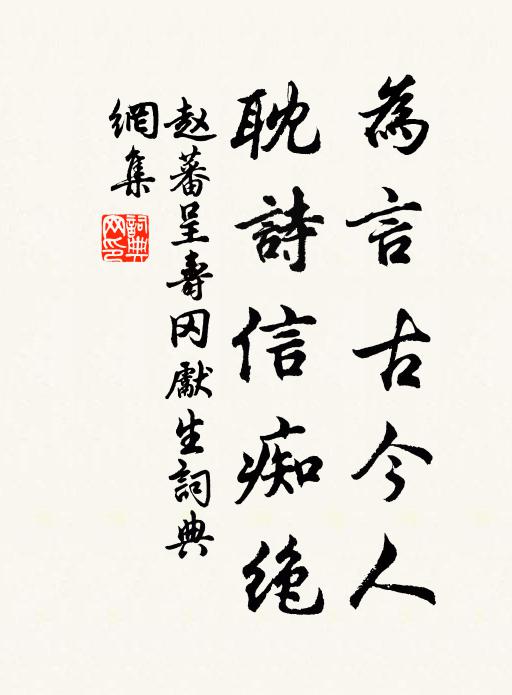 為言古今人
耽詩信痴绝
赵蕃呈壽冈獻生詞典
網集
詞典網印